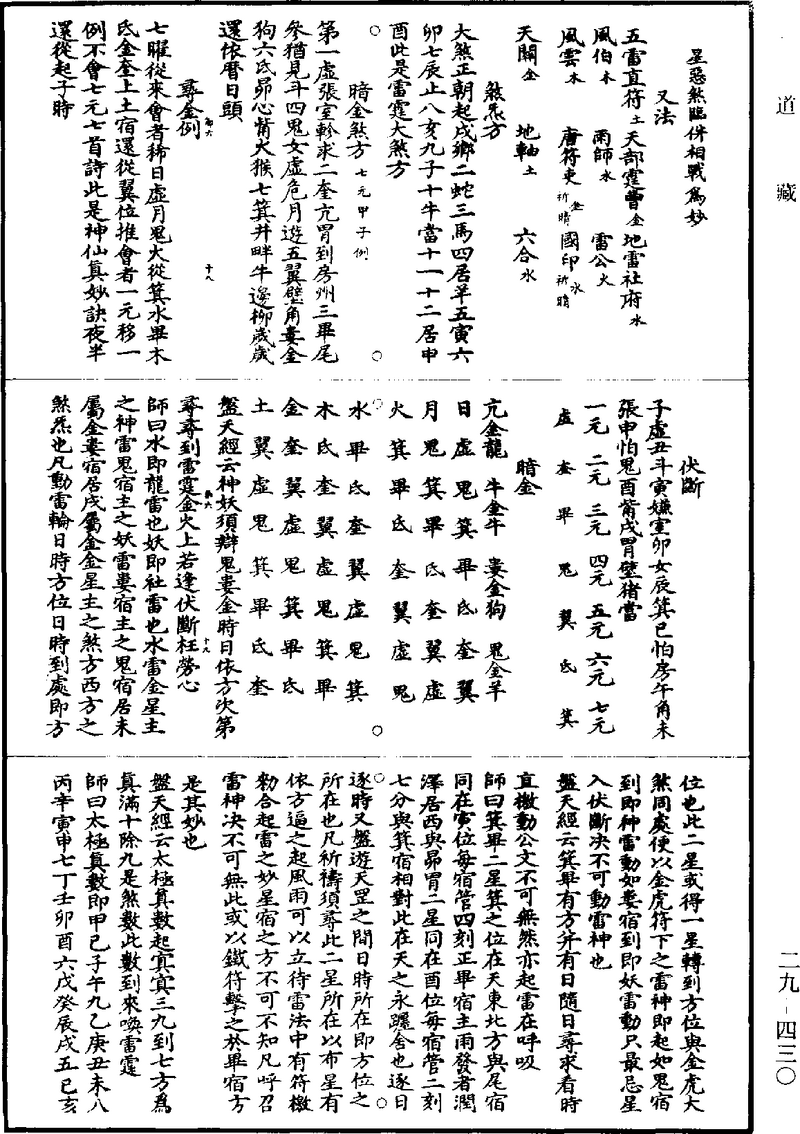 道藏
二九-四三〇
星惡煞臨併相戰爲妙
又法
五雷直符土 天部霆曹金 地雷社府水
風伯木 雨師水 雷公火
風雲木 唐符吏金祈晴 國印水祈晴
天關金 地軸土 六合水
煞炁方
大煞正朝起戌鄉二蛇三馬四居羊五寅六
卯七辰止八亥九子十牛當十一十二居申
酉此是雷霆大煞方
暗金煞方七元甲子例
第一虛張室軫求二奎亢胃到房州三畢尾
參猶見斗四鬼女虛危月遊五翼壁角婁金
狗六氐昴心觜火猴七箕井畔牛邊柳歲歲
還依曆日頭
尋金例
七曜從來會者稀日虛月鬼火從箕水畢木
氐金奎上土宿還從翼位推會者一元移一
例不會七元七首詩此是神仙真妙訣夜半
還從起子時
伏斷
子虛丑斗寅嫌室卯女辰箕巳怕房午角未
張申怕鬼酉觜戌胃壁猪當
一元 二元 三元 四元 五元 六元 七元
虛 奎 畢 鬼 翼 氐 箕
暗金
亢金龍 牛金牛 婁金狗 鬼金羊
日 虛 鬼 箕 畢 氐 奎 翼
月 鬼 箕 畢 氐 奎 翼 虛
火 箕 畢 氐 奎 翼 虛 鬼
水 畢 氐 奎 翼 虛 鬼 箕
木 氐 奎 翼 虛 鬼 箕 畢
金 奎 翼 虛 鬼 箕 畢 氐
土 翼 虛 鬼 箕 畢 氐 奎
盤天經云神妖須辯鬼婁金時日依方次第
尋尋到雷霆金火上若逢伏斷枉勞心
師曰水即龍雷也妖即社雷也水雷金星主
之神雷鬼宿主之妖雷婁宿主之鬼宿居未
屬金婁宿居戌屬金金星主之煞方西方之
煞炁也凡動雷輪日時方位日時到處即方
位也此二星或得一星轉到方位與金虎大
煞同處便以金虎符下之雷神即起如鬼宿
到即神雷動如婁宿到即妖雷動只最忌星
入伏斷決不可動雷神也
盤天經云箕畢有方并有日隨日尋求看時
直檄動公文不可無然亦起雷在呼吸
師曰箕畢二星箕之位在天東北方與尾宿
同在寅位每宿管四刻正畢宿主雨發者潤
澤居西與昴胃二星同在酉位每宿管二刻
七分與箕宿相對此在天之永躔舍也逐日
逐時又盤遊天罡之間日時所在即方位之
所在也凡祈禱須尋此二星所在以布星有
依方逼之起風雨可以立待雷法中有符檄
勑合起雷之妙星宿之方不可不知凡呼召
雷神決不可無此或以鐵符擊之於畢宿方
是其妙也
盤天經云太極真數起寘寘三九到七方爲
真滿十除九是煞數此數到來喚雷霆
師曰太極真數即甲己子午九乙庚丑未八
丙辛寅申七丁壬卯酉六戊癸辰戌五巳亥